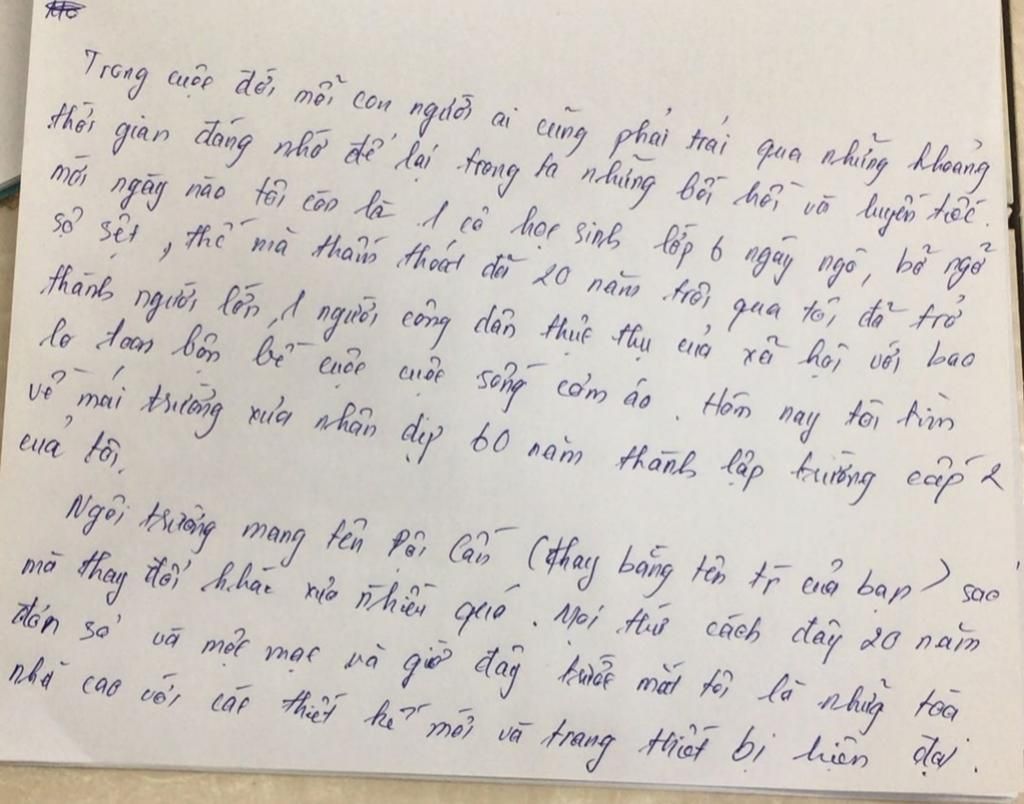 Trong cuộc đời mỗi con người ai cũng phải trải qua những khoảng
thời gian đáng nhớ để lại trong ta những bồi hồi và luyến tiếc.
mới ngày nào tôi còn là 1 cô học sinh lớp 6 ngây ngô, bỡ ngỡ
sợ sệt, thế mà thấm thoát đã 20 năm trôi qua tôi đã trở
thành người lớn, 1 người công dân thực thụ của xã hội với bao
lo toan bộn bề cuộc cuộc sống cơm áo. Hôm nay tôi tìm
về mái trường xưa nhân dịp 60 năm thành lập trường cấp 2
của tôi.
Ngôi trường mang tên Đội Cấn (thay bằng tên tr của bạn) sao
mà thay đổi khác xưa nhiều quá. Mọi thứ cách đây 20 năm
đơn sơ và mộc mạc và giờ đây trước mắt tôi là những tòa
nhà cao với các thiết kế mới và trang thiết bị hiện đại.